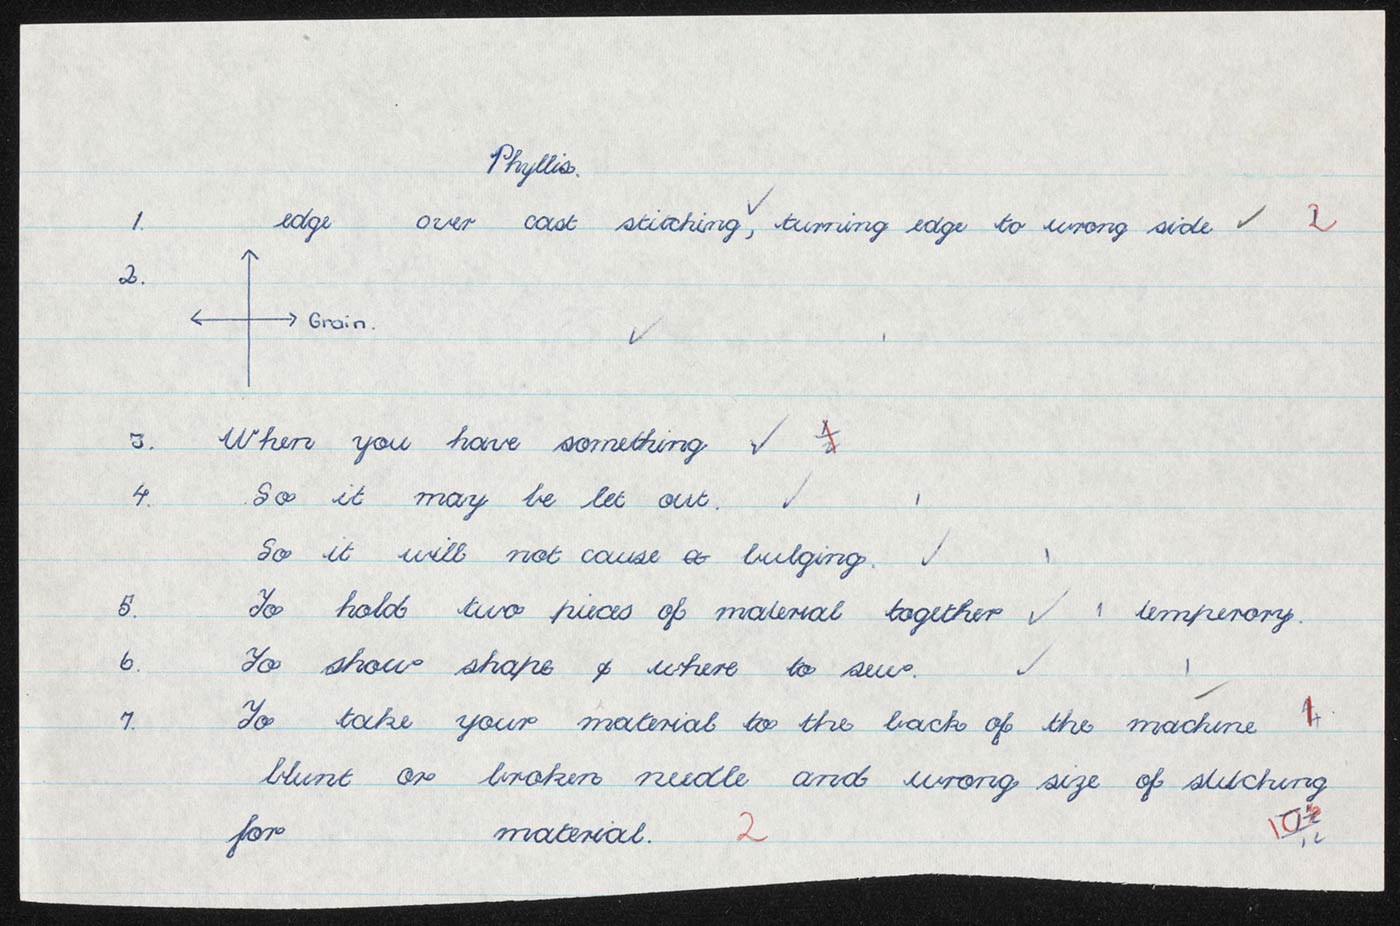 Phyllis.
1. edge over cast stitching, turning edge to wrong side ✓ 2
2.
Grain. ✓ 1
3. When you have something ✓ 1
4. So it may be let out. ✓ 1
So it will not cause bulging. ✓ 1
5. To hold two pieces of material together ✓ 1 temperory.
6. To show shape & where to sew. ✓ 1
7. To take your material to the back of the machine 1
blunt or broken needle and wrong size of stitching
for material. 2